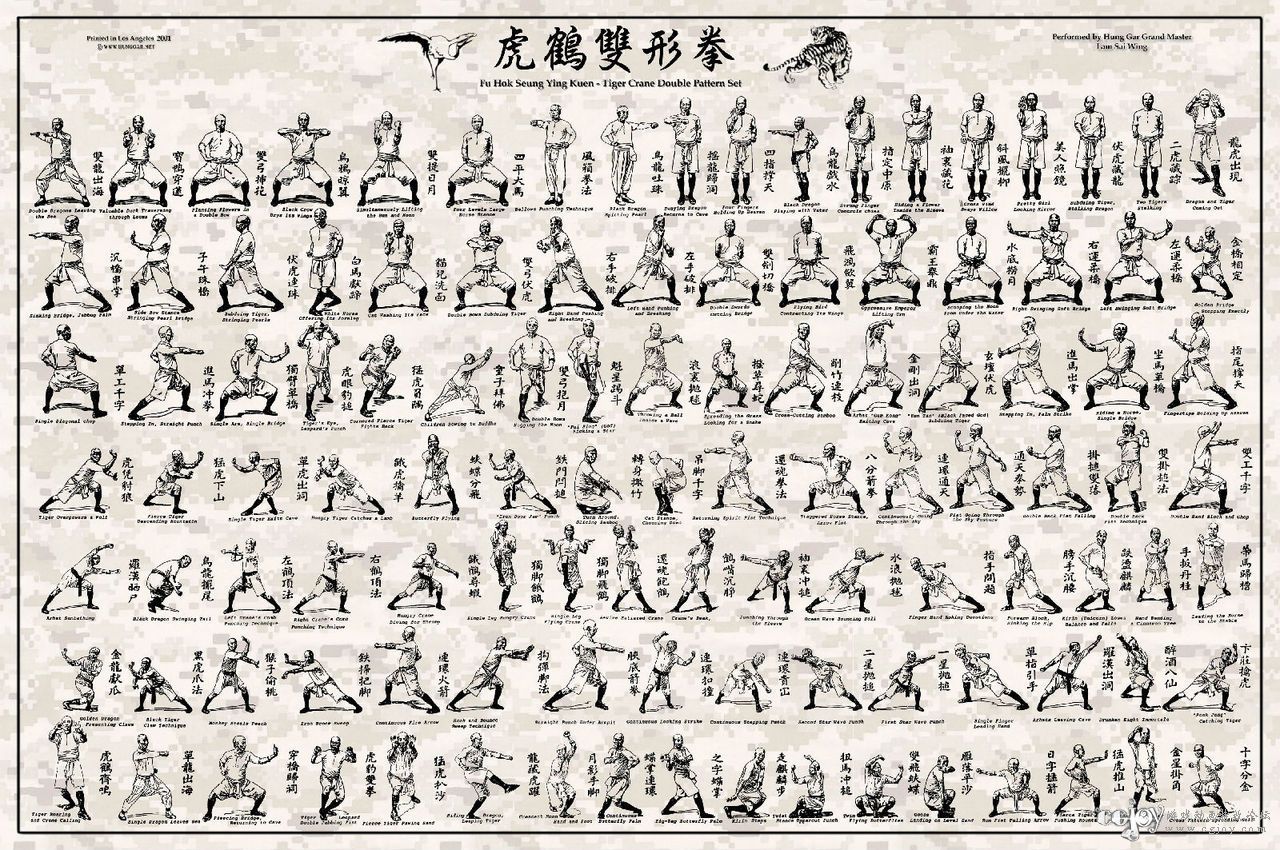 Printed in Los Angeles 2001
© WWW.HUNGGAR.NET
虎鶴雙形拳
Fu Hok Seung Ying Kuen - Tiger Crane Double Pattern Set
Performed by Hung Gar Grand Master
Lam Sai Wing
龍虎出現
二虎藏踪
伏虎藏龍
美人照鏡
斜風擺柳
袖裏藏花
指定中原
烏龍戲水
四指撐天
搖龍歸洞
烏龍吐珠
風箱拳法
四平大馬
雙提日月
烏鴉晾翼
雙弓掃花
寶鴨穿蓮
雙龍出海
Double Dragons Leaving
the Sea
Valuable Duck Traversing
through Lotus
Planting Flowers in
a Double Bow
Black Crow
Drys Its Wings
Simultaneously Lifting
the Sun and Moon
Four Levels Large
Horse Stance
Bellows Punching Technique
Black Dragon
Spitting Pearl
Returns to Cave
Four Fingers
Holding Up Heaven
Black Dragon
Playing with Water
Strong Finger
Controls China
Hiding a Flower
Inside the Sleeve
Cross Wind
Sways Willow
Pretty Girl
Looking Mirror
Subduing Tiger,
Stalking Dragon
Two Tigers
Stalking
Dragon and Tiger
Coming Out
金橋相定
左運柔橋
右運柔橋
水底撈月
霸王舉鼎
飛鴻斂翼
雙劍切橋
左手破排
右手破排
雙弓伏虎
貓兒洗面
白馬獻蹄
伏虎連珠
子午珠橋
沉橋串掌
Sinking Bridge, Jabbing Palm
Side Bow Stance
Stringing Pearl Bridge
Subduing Tiger,
Stringing Pearls
White Horse
Offering Its Foreleg
Cat Washing Its Face
Double Bows Subduing Tiger
Right Hand Pushing
and Breaking
Left Hand Pushing
and Breaking
Double Swords
Cutting Bridge
Flying Bird
Contracting Its Wings
Oppressive Emperor
Lifting Urn
Scooping the Moon
from Under the Water
Right Swinging Soft Bridge
Left Swinging Soft Bridge
Golden Bridge
Stopping Exactly
指尾撐天
坐馬單橋
進馬出掌
玄壇伏虎
金剛出洞
削竹連枝
撥草尋蛇
滾浪拋毬
魁星踢斗
雙弓抱月
童子拜佛
猛虎負隅
虎眼豹搥
獨臂單橋
進馬冲拳
單工千字
Single Diagonal Chop
Stepping In, Straight Punch
Single Arm, Single Bridge
Tiger's Eye,
Leopard's Punch
Cornered Fierce Tiger
Fights Back
Children Bowing to Buddha
Double Bows
Hugging the Moon
Kicking a Star
Throwing a Ball
Inside a Wave
Spreading the Grass
Looking for a Snake
Cross-Cutting Bamboo
Arhat "Gum Kong"
Exiting Cave
Subduing Tiger
Stepping In, Palm Strike
Riding a Horse,
Single Bridge
Fingertips Holding Up Heaven
雙工千字
雙掛搥法
掛搥雙落
通天拳勢
連環通天
八分箭拳
還魂拳法
吊脚千字
轉身撒竹
鐵門門搥
蛺蝶分飛
餓虎擒羊
單虎出洞
猛虎下山
虎兕射狼
Tiger Overpowers a Wolf
Fierce Tiger
Descending Mountain
Single Tiger Exits Cave
Hungry Tiger Catches a Lamb
Butterfly Flying
"Iron Door Jam" Punch
Turn Around,
Slicing Bamboo
Cat Stance,
Returning Spirit Fist Technique
Staggered Horse Stance,
Arrow Fist
Continuously Going
Through the Sky
Fist Going Through
the Sky Posture
Double Back Fist Falling
Double Back
Fist Technique
Double Hand Block and Chop
吊馬歸槽
手扳丹桂
鼓盪麒麟
膀手沉腰
指手問路
水浪拋毬
袖裏冲搥
鶴嘴沉腳
還魂飽鶴
獨脚飛鶴
獨脚餓鶴
餓鶴尋蝦
右鶴頂法
左鶴頂法
烏龍擺尾
羅漢晒尸
Arhat Sunbathing
Black Dragon Swinging Tail
Left Crane's Comb
Punching Technique
Right Crane's Comb
Punching Technique
Hungry Crane
Diving for Shrimp
Single Leg Hungry Crane
Single Leg
Flying Crane
Awaken Satiated Crane
Crane's Beak,
Punching Through
the Sleeve
Ocean Wave Bouncing Ball
Finger Hand Asking Directions
Forearm Block,
Sinking the Hip
Kirin (Unicorn) Loses
Balance and Falls
Hand Bending
a Cinnamon Tree
Leading the Horse
to the Stable
卞莊擒虎
醉酒八仙
羅漢出洞
單指引手
一星拋搥
二星拋搥
連環貫山
連環扣撞
脥底箭拳
拘彈脚法
連環火箭
鉄掃把脚
猴子偷桃
黑虎爪法
金龍獻爪
Golden Dragon
Presenting Claws
Black Tiger
Claw Technique
Monkey Steals Peach
Iron Broom Sweep
Continuous Fire Arrow
Hook and Bounce
Sweep Technique
Straight Punch Under Armpit
Continuous Locking Strike
Continuous Stepping Punch
Second Star Wave Punch
First Star Wave Punch
Single Finger
Leading Hand
Arhats Leaving Cave
Drunken Eight Immortals
Catching Tiger
十字分金
金星掛角
猛虎推山
日字搥箭
雁落平沙
雙飛蛺蝶
扭馬冲搥
走麒麟步
之字蝶掌
蝶掌連環
月影手脚
龍藏虎躍
猛虎扒沙
虎豹雙拳
穿橋歸洞
單龍出海
虎鶴齊鳴
Tiger Roaring
and Crane Calling
Single Dragon Leaves Sea
Piercing Bridge,
Returning to Cave
Tiger and Leopard
Double Jabbing Fist
Fierce Tiger Pawing Sand
Hiding Dragon,
Leaping Tiger
Crescent Moon
Hand and Foot
Continuous
Butterfly Palm
Zig-Zag Butterfly Palm
Kirin Steps
Twist Horse
Stance Uppercut Punch
Twin
Flying Butterflies
Geese
Landing on Level Sand
Sun Fist Falling Arrow
Fierce Tiger
Pushing Mountain
cgjoy
www.cgjoy.com